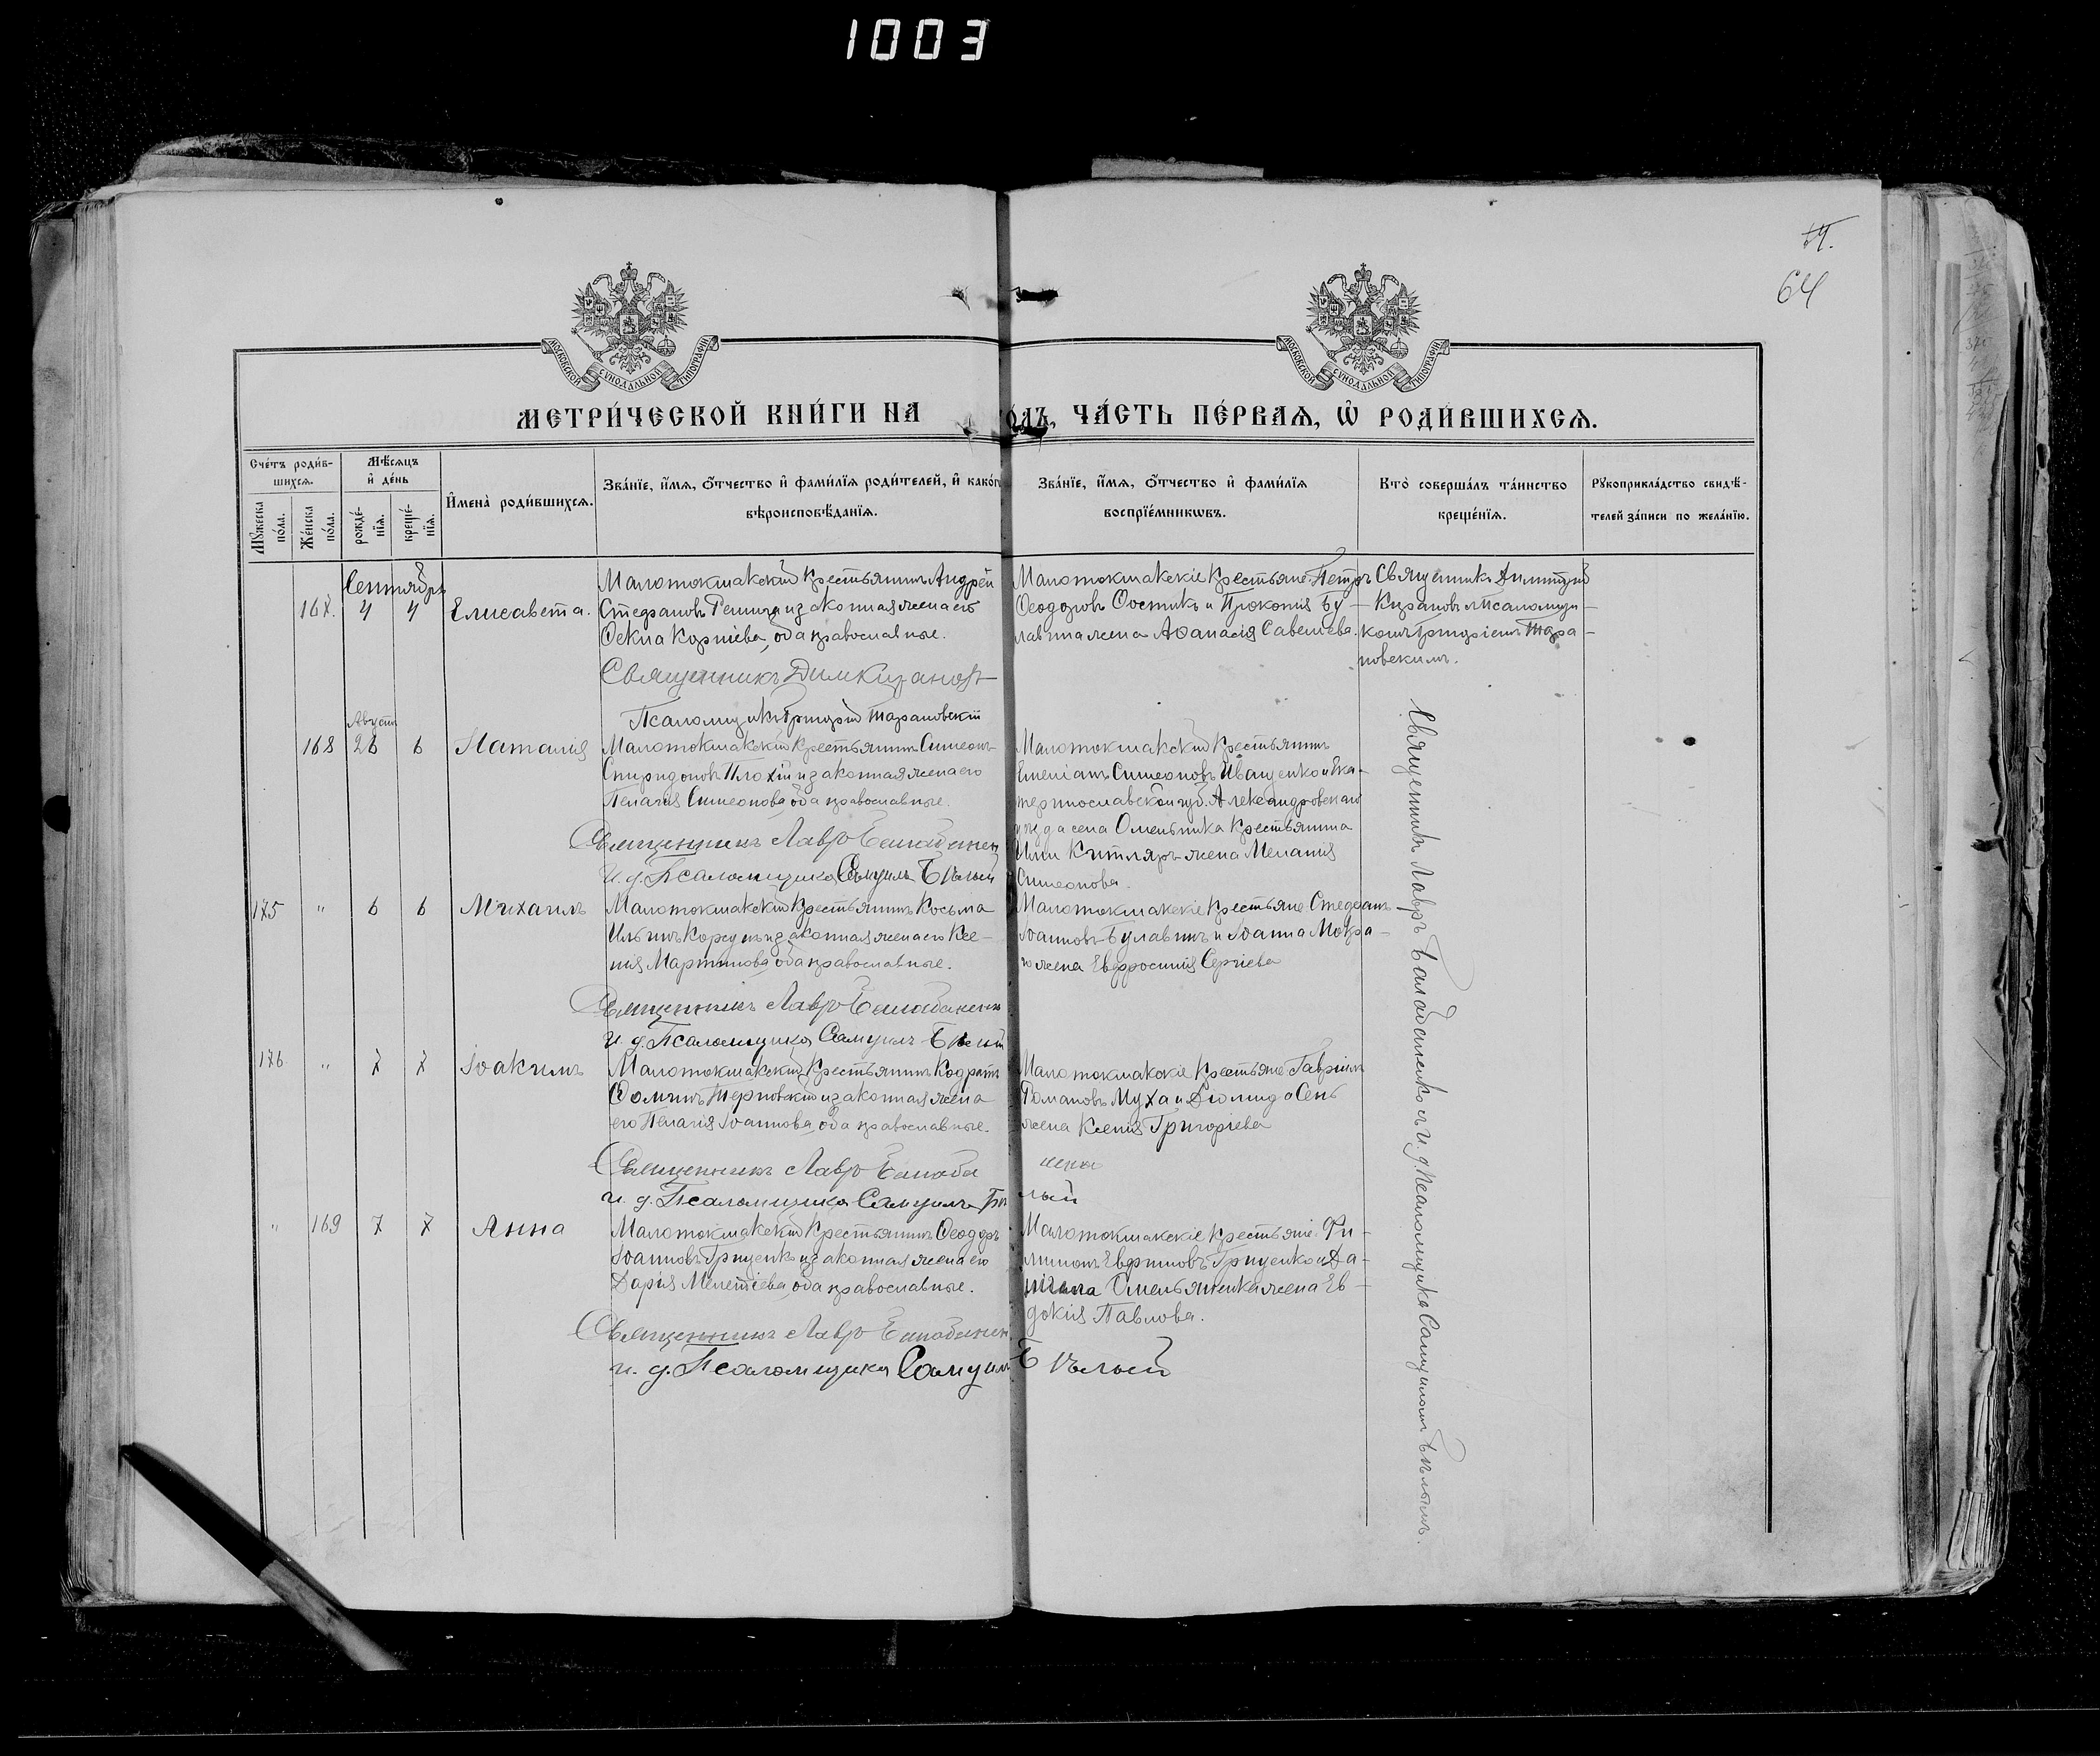 1003
64
МОСКОВСКОЙ СѴНОДАЛЬНОЙ ТИПОГРАФІИ
МОСКОВСКОЙ СѴНОДАЛЬНОЙ ТИПОГРАФІИ
МЕТРИ́ЧЕСКОЙ КНИ́ГИ НА
О́ДЪ, ЧА́СТЬ ПЕ́РВАѦ, Ѡ҆ РОДИ́ВШИХСѦ.
Сче́тъ роди́в-
шихсѧ.
Мѣ́сѧцъ
и҆ де́нь
Мꙋ́жеска
по́ла.
Же́нска
по́ла.
рожде́-
нїѧ.
креще́-
нїѧ.
И҆мена̀ роди́вшихсѧ.
Зва́нїе, и҆́мѧ, ѻ҆́тчество и҆ фами́лїѧ роди́телей, и҆ како́г
вѣроисповѣ́данїѧ.
Зва́нїе, и҆́мѧ, ѻ҆́тчество и҆ фами́лїѧ
воспрїе́мникѡвъ.
Кто̀ соверша́лъ та́инство
креще́нїѧ.
Рꙋкоприкла́дство свидѣ́-
телей за́писи по жела́нїю.
Сентябрь
167. 4 4 Елисавета.
Малотокмакскій крестьянинъ Андрей
Стефановъ Репица и законная жена его
Ѳекла Корніева, оба православные.
Священникъ Дим Кирановъ
Псаломщикъ Григорій Тарановскій
Малотокмакскіе крестьяне: Петръ
Ѳеодоровъ и Прокопія Бу-
лавина жена Аѳанасія Савельева.
Священникъ Димитрій
Кирановъ съ псаломщи-
комъ Григоріемъ Тара-
новскимъ.
Август
168 26 6 Наталія
Малотокмакскій крестьянинъ Симеонъ
Спиридоновъ Плохій и законная жена его
Пелагія Симеонова, оба православные.
Священникъ Лавръ Балабаненк
И. д. Псаломщика Самуилъ Бѣлый
Малотокмакскій крестьянинъ
Емеліанъ Симеоновъ Иващенко и Ека-
теринославской губ. Александровскаго
уѣзда села Омельника крестьянина
Иліи жена Меланія
Симеонова.
175 " 6 6 Михаилъ
Малотокмакскій крестьянинъ Косьма
Ильинъ Корсунъ и законная жена его Ксе-
нія Мартинова, оба православные.
Священникъ Лавръ Балабаненк
И. д. Псаломщика Самуилъ Бѣлый
Малотокмакскіе крестьяне Стефанъ
Іоанновъ Булавинъ и Іоанна Мокра-
го жена Евфросинія Сергіева
176 " 7 7 Іоакимъ
Малотокмакскій крестьянинъ Кодратъ
Ѳоминъ Терновскій и законная жена
его Пелагія Іоаннова, оба православные.
Священникъ Лавръ Балаба ненко
И. д. Псаломщика Самуилъ Бѣ лый
Малотокмакскіе крестьяне Гавріилъ
Романовъ Муха и Діомида Сень
жена Ксенія Григоріева
" 169 7 7 Анна
Малотокмакскій крестьянинъ Ѳеодоръ
Іоанновъ Гриценко и законная жена его
Дарія Мелетіева, оба православные.
Священникъ Лавръ Балабаненк
И. д. Псаломщика Самуилъ Бѣлый
Малотокмакскіе крестьяне: Фи-
лимонъ Гриценко и Да-
ніила Омельяненка жена Ев-
докія Павлова.
Священникъ Лавръ Балабаненко съ И. д. Псаломщика Самуиломъ Бѣлымъ.